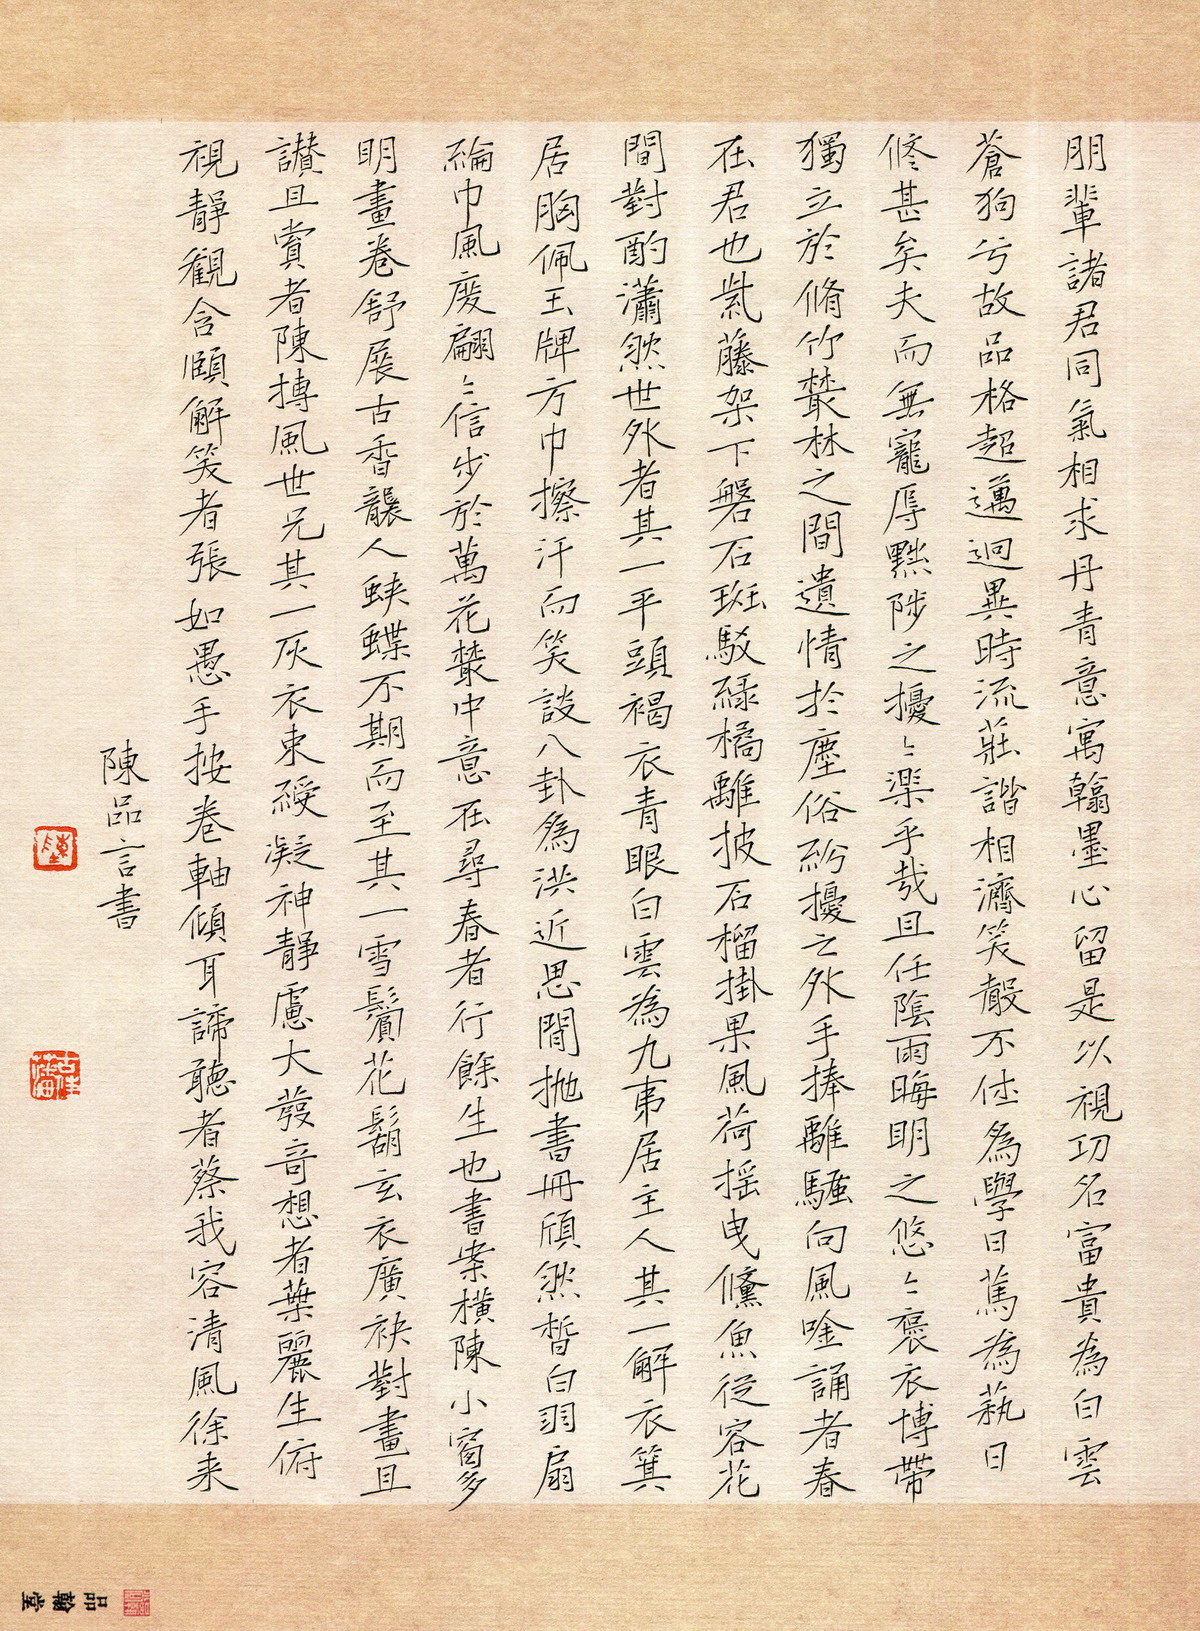 朋輩諸君同氣相求丹青意寓翰墨心留是以視功名富貴為白雲
蒼狗兮故品格超邁迥異時流莊諧相濟笑聲不住為學日篤為蓺日
修甚矣夫而無寵辱黜陟之擾〻樂乎哉且任陰雨晦明之悠〻褒衣博帶
獨立於脩竹叢林之間遺情於塵俗紛擾之外手捧離騷向風唫誦者春
在君也紫藤架下磐石斑駁綠橘離披石榴掛果風荷搖曳儵魚從容花
間對酌瀟然世外者其一平頭褐衣青眼白雲為九苐居主人其一解衣箕
居胸佩玉牌方巾擦汗而笑談八卦為洪近思閒拋書冊頎然皙白羽扇
綸巾風度翩〻信步於萬花叢中意在尋春者行餘生也書案橫陳小窗多
明畫卷舒展古香襲人蛺蝶不期而至其一雪鬢花鬍玄衣廣袂對畫且
讚且賞者陳摶風世兄其一灰衣束綬凝神靜慮大發奇想者葉麗生俯
視靜觀含頤解笑者張如愚手按卷軸傾耳諦聽者蔡我容清風徐來
陳品言書
品翰堂